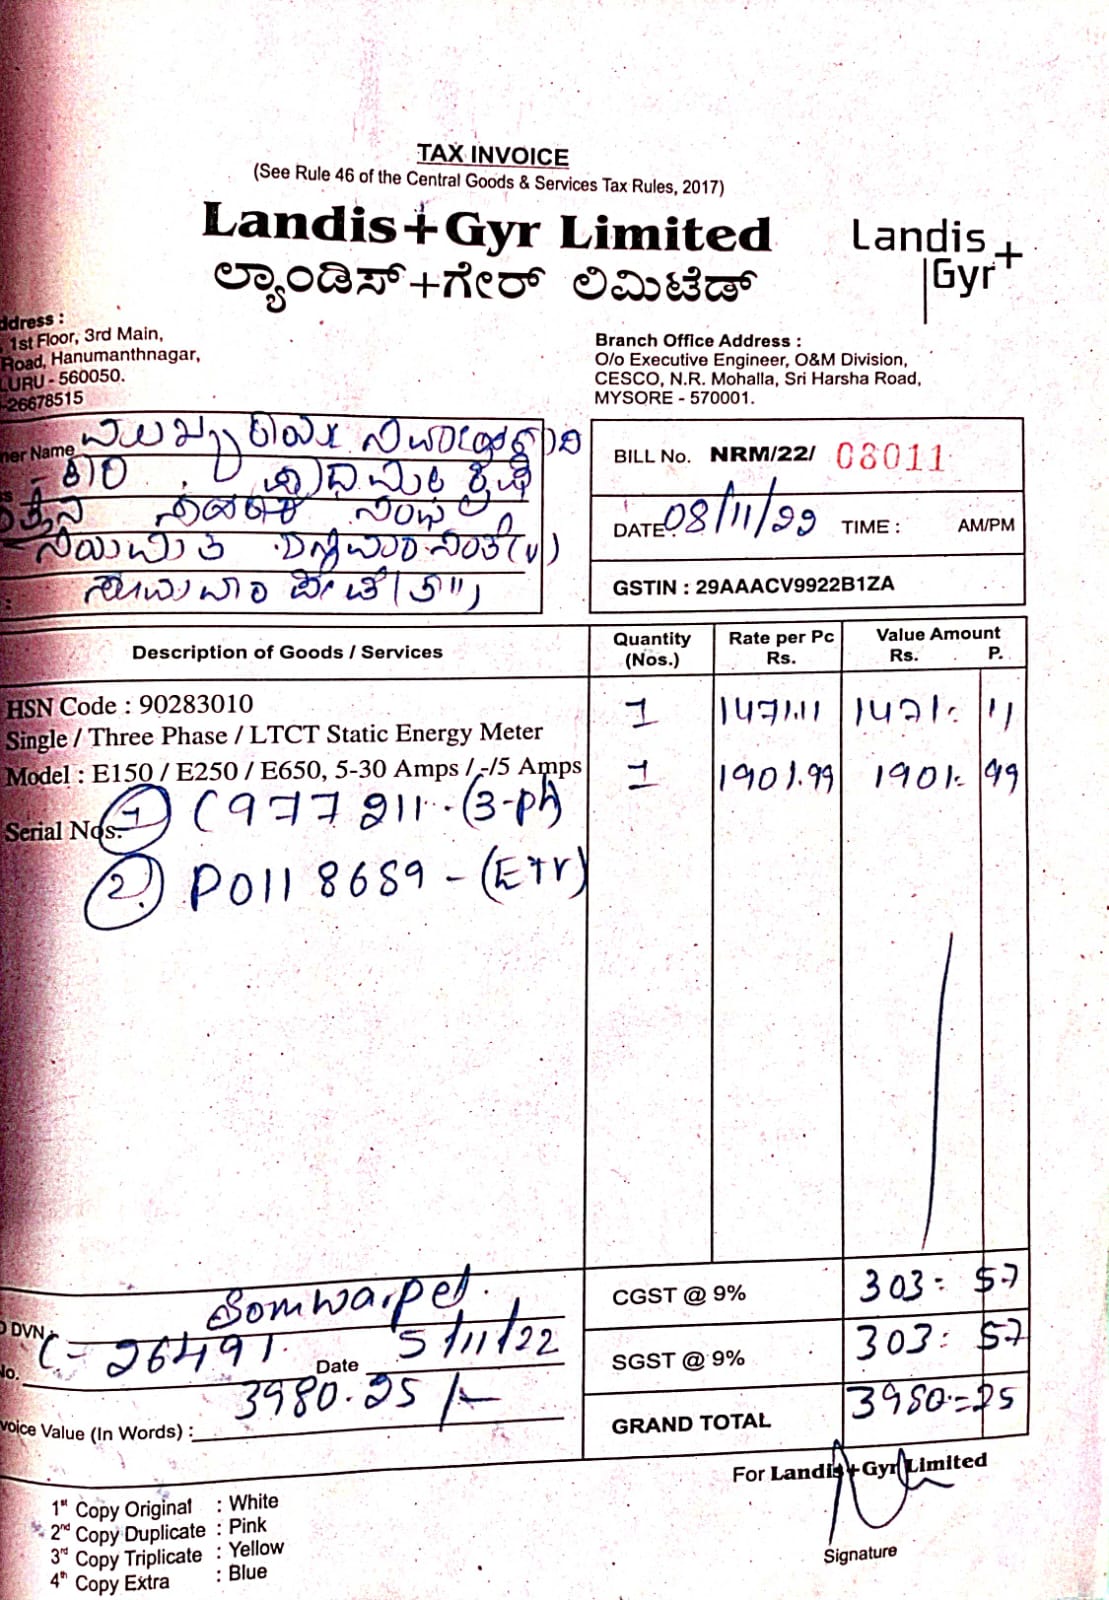 TAX INVOICE
(See Rule 46 of the Central Goods & Services Tax Rules, 2017)
Landis+Gyr Limited
ಲ್ಯಾಂಡಿಸ್+ಗೇರ್ ಲಿಮಿಟೆಡ್
Landis
Gyr+
ddress :
1st Floor, 3rd Main,
Road, Hanumanthnagar,
LURU - 560050.
-26678515
Branch Office Address :
O/o Executive Engineer, O&M Division,
CESCO, N.R. Mohalla, Sri Harsha Road,
MYSORE - 570001.
ner Name
ಪ್ರಾಥಮಿಕ ಕೃಷಿ
ಪತ್ತಿನ ಸಹಕಾರ ಸಂಘ
ನಿಯಮಿತ
ಸೋಮವಾರ ಪೇಟೆ (ತಾ||)
BILL No. NRM/22/ 08011
DATE: 08/11/22 TIME : AM/PM
GSTIN : 29AAACV9922B1ZA
Description of Goods / Services Quantity (Nos.) Rate per Pc Rs. Value Amount Rs. P.
HSN Code : 90283010 1 1471.11 1471. 11
Single / Three Phase / LTCT Static Energy Meter
Model : E150 / E250 / E650, 5-30 Amps / -/5 Amps 1 1901.99 1901. 99
Serial Nos. 1) C977211 - (3-ph)
2) P0118689 - (ETV)
Somwarpet CGST @ 9% 303 = 57
O DVN
No. C- 26491 Date 5/11/22 SGST @ 9% 303 = 57
3980.25/-
voice Value (In Words) : GRAND TOTAL 3980 = 25
For Landis+Gyr Limited
1st Copy Original : White
2nd Copy Duplicate : Pink
3rd Copy Triplicate : Yellow
4th Copy Extra : Blue
Signature